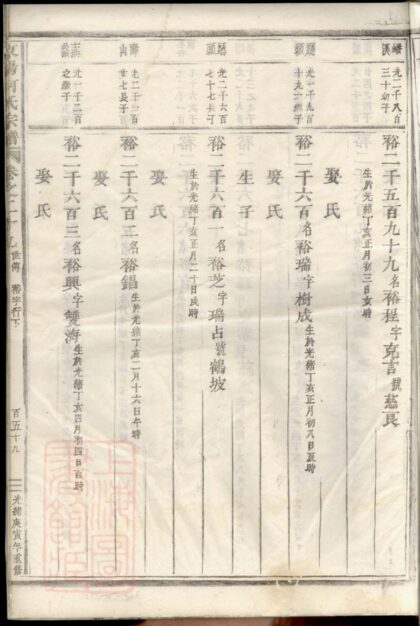 光二千八百
三十幼子
裕二千五百九十九名裕程字克言號慈民
生於光緒丁亥正月初三日亥時
娶氏
光一千九百
十九之子
裕二千六百名裕瑞字樹成生於光緒丁亥正月初八日辰時
娶氏
光二千六百
七十七長子
生子
裕二千六百一名裕芝字瑞占號鶴坡
生於光緒丁亥正月二十日辰時
娶氏
光二千二十
世七長子
裕二千六百二名裕錩生於光緒丁亥二月十六日午時
娶氏
光一千二百
之繼子
裕二千六百三名裕興字雙海生於光緒丁亥四月初四日寅時
娶氏
何氏宗譜
卷之二十九世傳 裕字行下
百五十九
光緒庚寅年重修
上海圖書館藏